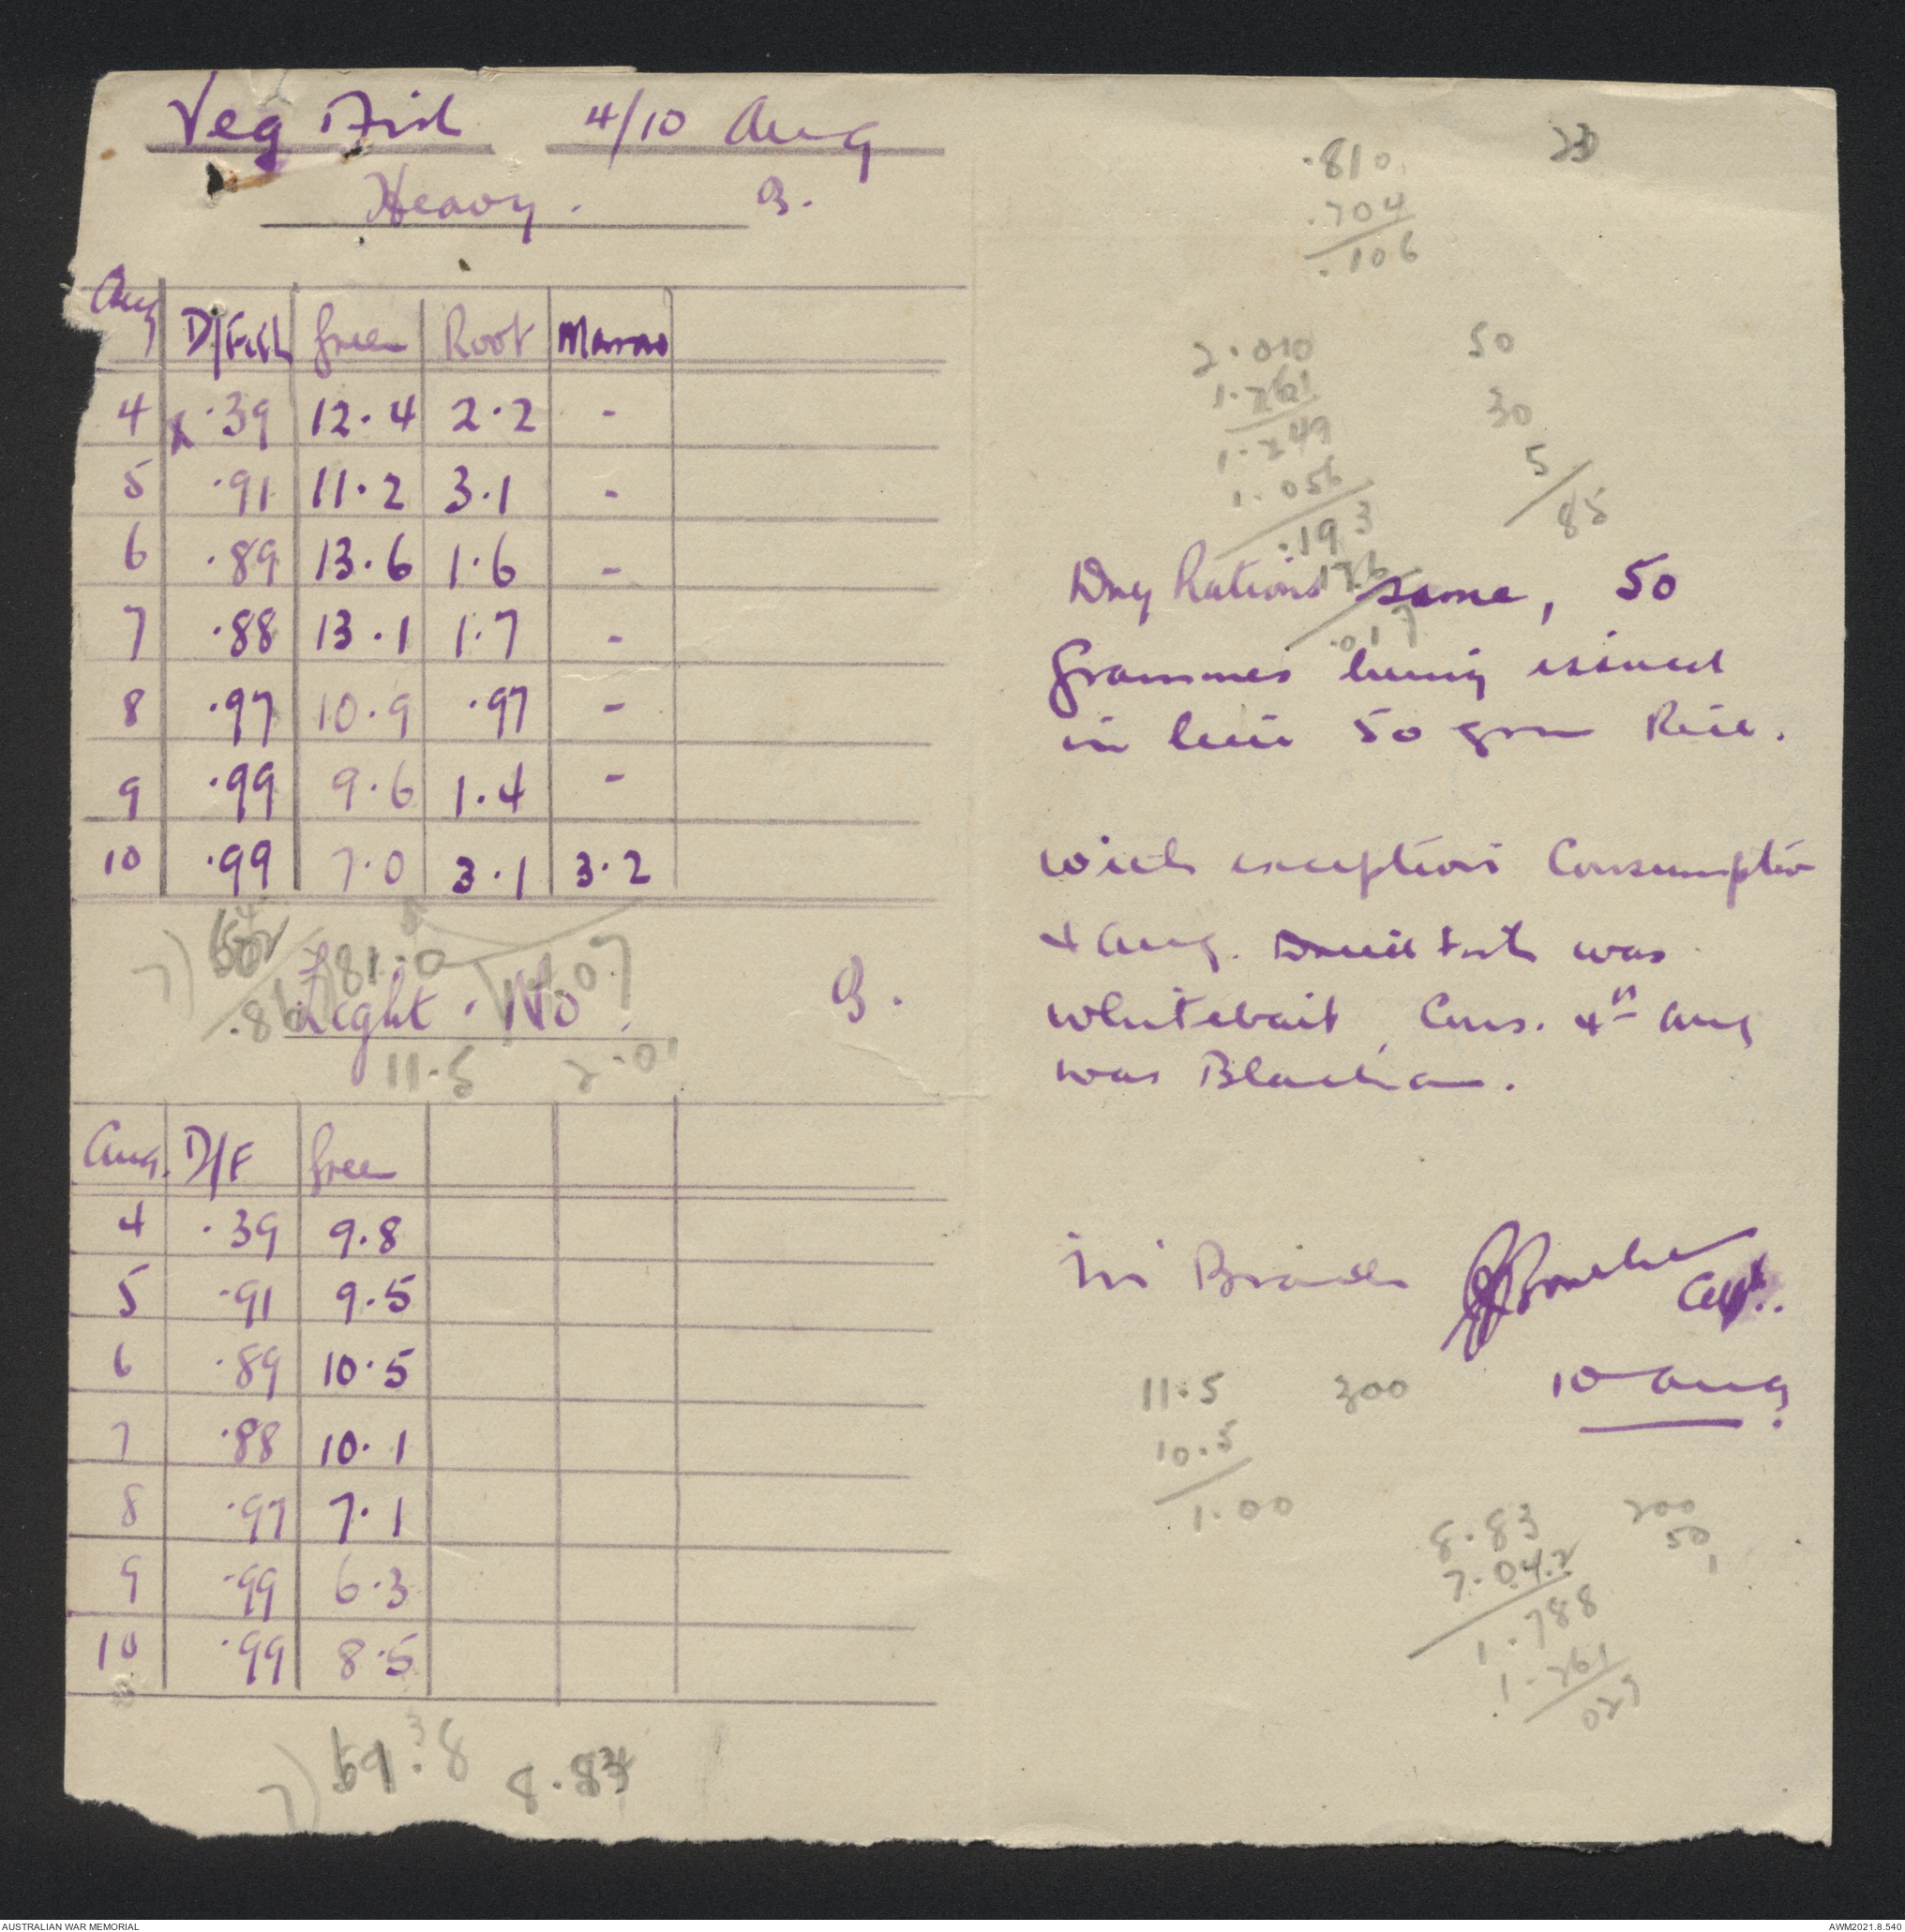 Veg Fish 4/10 Aug
Heavy.
Aug D/Fish Green Root Marrow
4 x .39 12.4 2.2 -
5 .91 11.2 3.1 -
6 .89 13.6 1.6 -
7 .88 13.1 1.7 -
8 .97 10.9 .97 -
9 .99 9.6 1.4 -
10 .99 7.0 3.1 3.2
Light. No
11.5 2.01
Aug. D/F Green
4 .39 9.8
5 .91 9.5
6 .89 10.5
7 .88 10.1
8 .97 7.1
9 .99 6.3
10 .99 8.5
7)
.810
.704
.106
2.010
1.761
1.249
1.056
.193
176
.017
50
30
5
85
Dry Rations same, 50
Grammes being issued
in lieu 50 grm Rice.
with exception Consumption
4 Aug. Dried fish was
Whitebait, Cons. 4th Aug
was Blachan.
Capt.
10 Aug
11.5
10.5
1.00
300
8.83
7.042
1.788
1.761
027
200
50
AUSTRALIAN WAR MEMORIAL
AWM2021.8.540